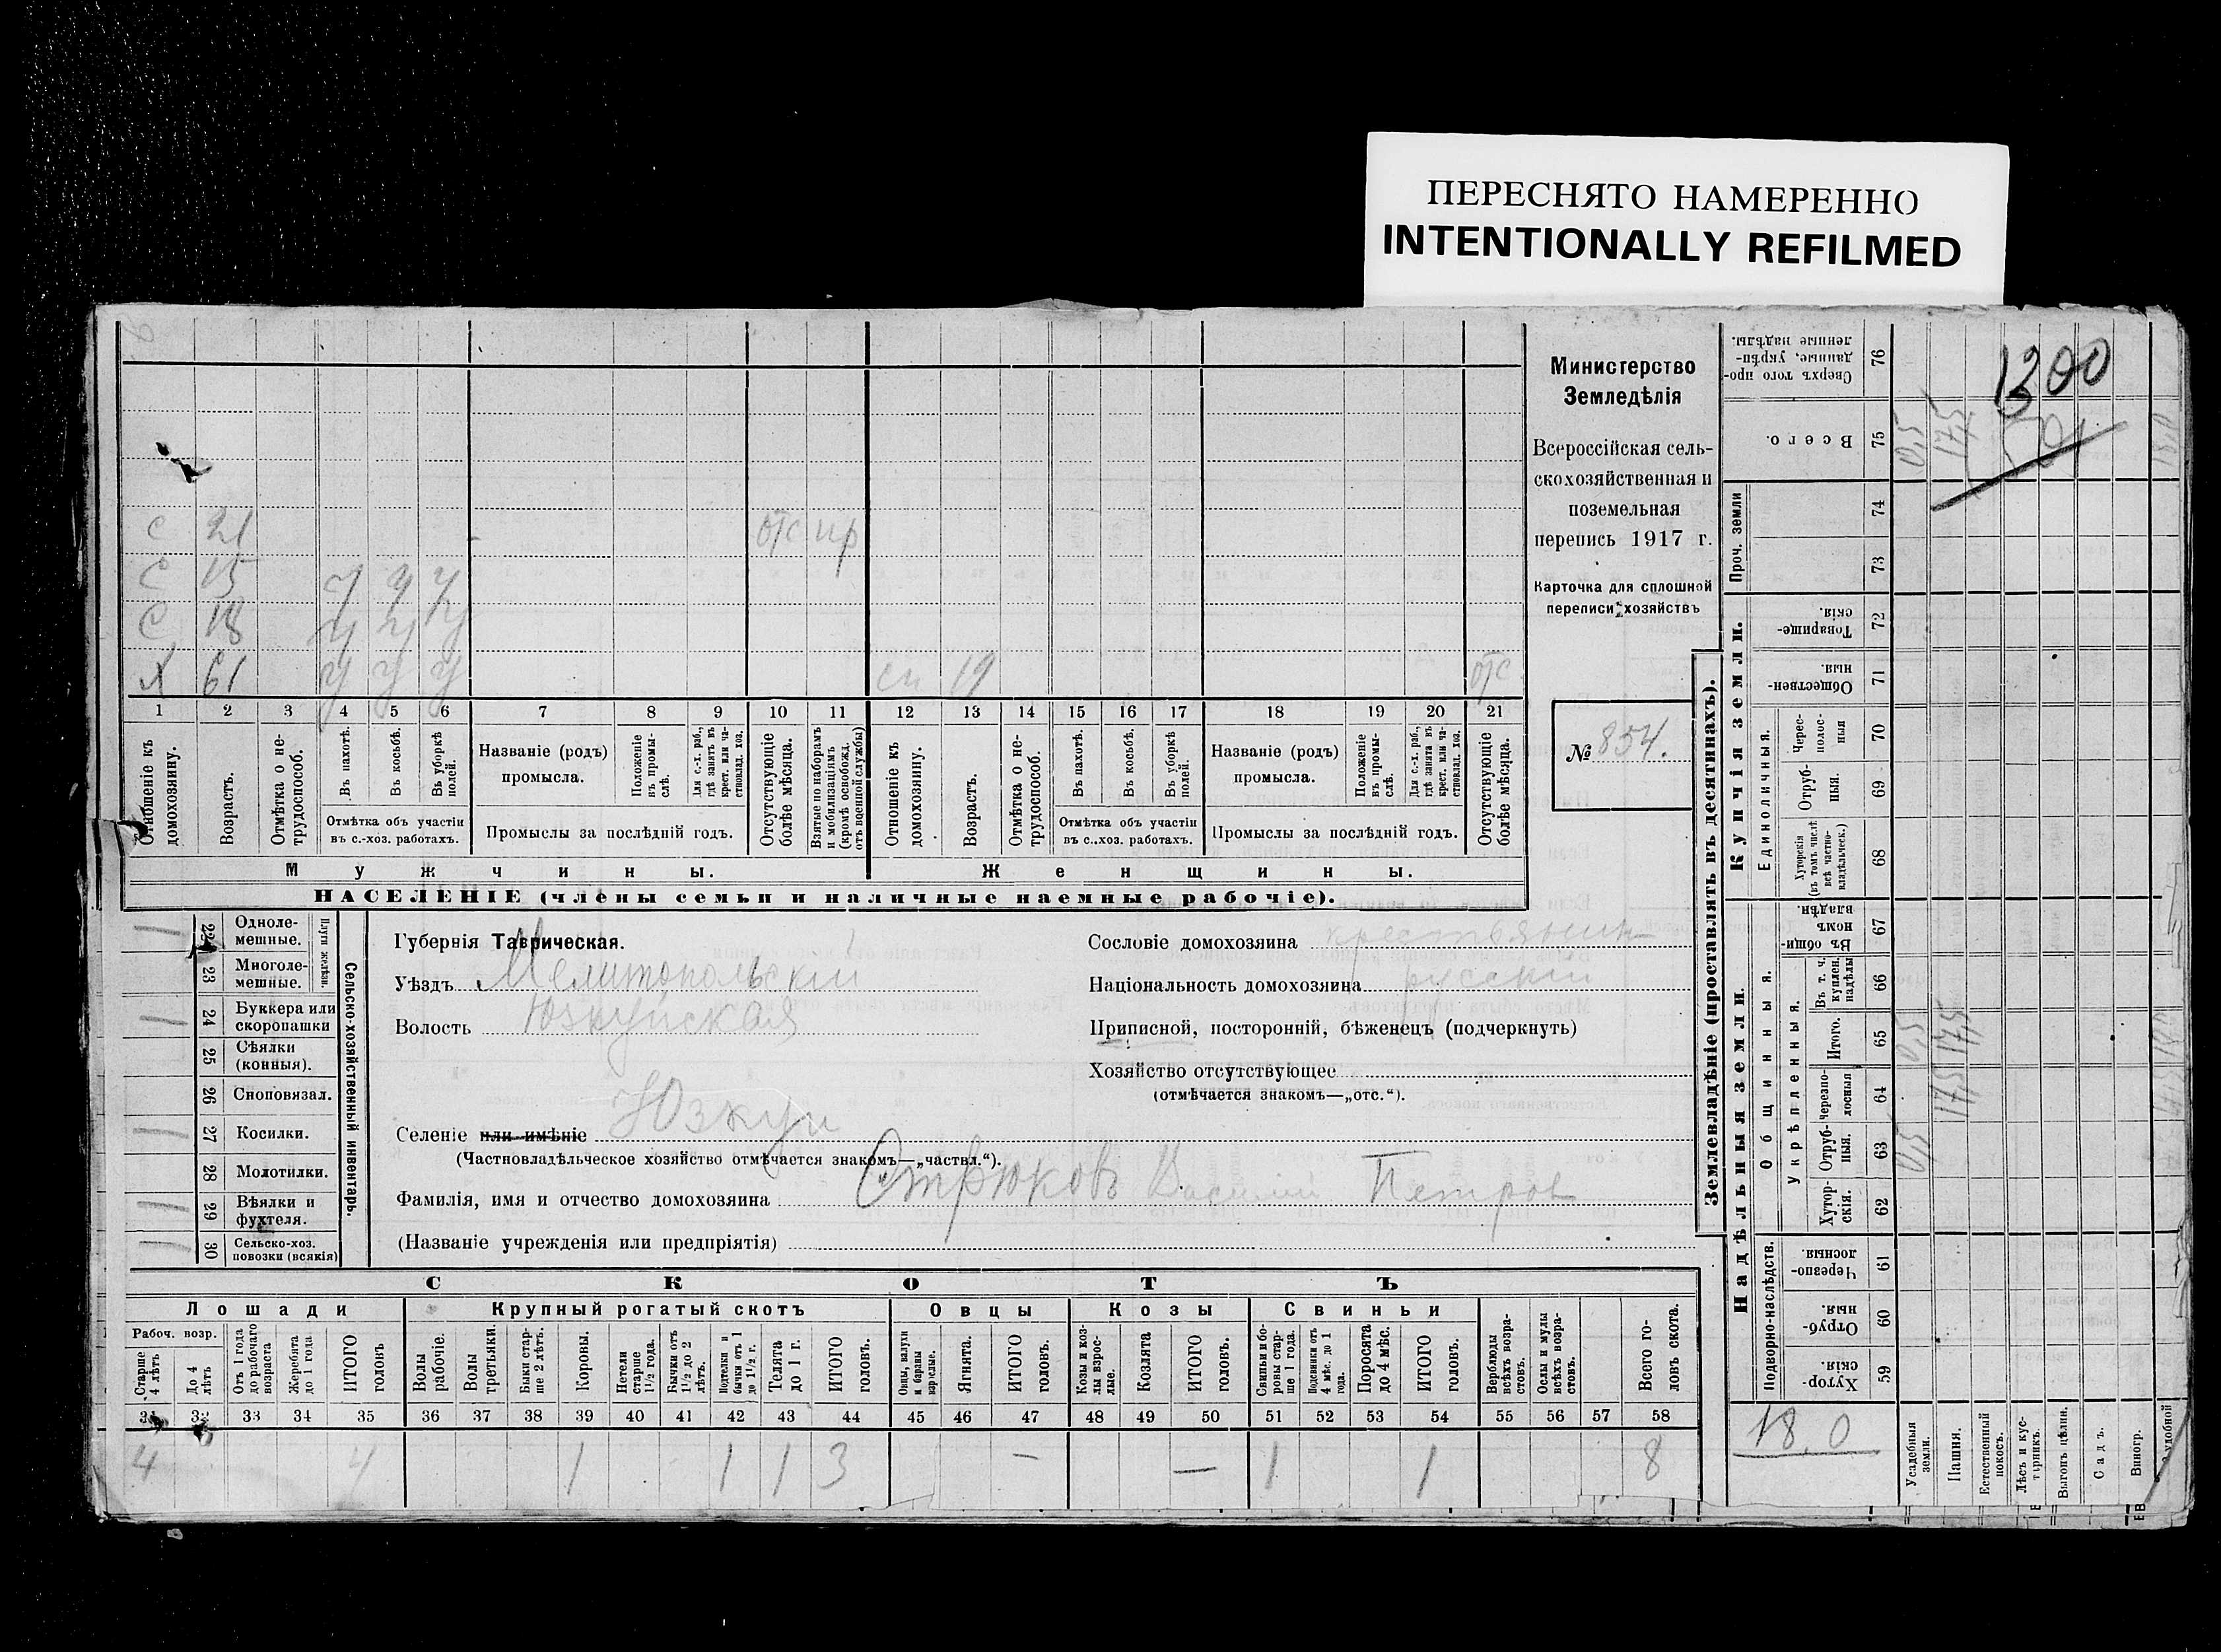 ПЕРЕСНЯТО НАМЕРЕННО
INTENTIONALLY REFILMED
Министерство
Земледѣлія
Всероссійская сель-
скохозяйственная и
поземельная
перепись 1917 г.
Карточка для сплошной
переписи хозяйствъ
№ 854.
с 21 отс пр
с 15 у у у
с 18 у у у
х 61 у у у 19 отс
1 2 3 4 5 6 7 8 9 10 11 12 13 14 15 16 17 18 19 20 21
Отношеніе къ домохозяину.
Возрастъ.
Отмѣтка о не-трудоспособ.
Въ пахотѣ.
Въ косьбѣ.
Въ уборкѣ полей.
Отмѣтка объ участіи
въ с.-хоз. работахъ.
Названіе (родъ)
промысла.
Положеніе въ промы-слѣ.
Для с.-х. раб., гдѣ занятъ въ крест. или ча-стновлад. хоз.
Промыслы за послѣдній годъ.
Отсутствующіе болѣе мѣсяца.
Взятые по наборамъ и мобилизаціямъ (кромѣ освобожд. отъ военной службы)
Отношеніе къ домохозяину.
Возрастъ.
Отмѣтка о не-трудоспособ.
Въ пахотѣ.
Въ косьбѣ.
Въ уборкѣ полей.
Отмѣтка объ участіи
въ с.-хоз. работахъ.
Названіе (родъ)
промысла.
Положеніе въ промы-слѣ.
Для с.-х. раб., гдѣ занята въ крест. или ча-стновлад. хоз.
Промыслы за послѣдній годъ.
Отсутствующіе болѣе мѣсяца.
Мужчины. Женщины.
НАСЕЛЕНІЕ (члены семьи и наличные наемные рабочіе).
Сельско-хозяйственный инвентарь.
Плуги желѣзн.
Одноле-
мешные.
23 Многоле-
мешные.
24 Буккера или
скоропашки
25 Сѣялки
(конныя).
26 Сноповязал.
27 Косилки.
28 Молотилки.
29 Вѣялки и
фухтеля.
30 Сельско-хоз.
повозки (всякія)
Губернія Таврическая.
Уѣздъ Мелитопольскій
Волость Юзкуйская
Селеніе или имѣніе Юзкуи
(Частновладѣльческое хозяйство отмѣчается знакомъ—„частвл.“).
Фамилія, имя и отчество домохозяина Отрюковъ Василій Петров
(Названіе учрежденія или предпріятія)
Сословіе домохозяина крестьянин
Національность домохозяина русскій
Приписной, посторонній, бѣженецъ (подчеркнуть)
Хозяйство отсутствующее
(отмѣчается знакомъ—„отс.“).
СКОТЪ
Лошади Крупный рогатый скотъ Овцы Козы Свиньи
Рабоч. возр.
Старше 4 лѣтъ
До 4 лѣтъ
Отъ 1 года до рабочаго возраста
Жеребята до 1 года
ИТОГО головъ
Волы рабочіе.
Волы третьяки.
Быки стар-ше 2 лѣтъ.
Коровы.
Нетели старше 1½ года.
Бычки отъ 1½ до 2 лѣтъ.
Подтелки и бычки отъ 1 до 1½ г.
Телята до 1 г.
ИТОГО головъ.
Овцы, валухи и бараны взрослые.
Ягнята.
ИТОГО головъ.
Козы и коз-лы взрос-лые.
Козлята
ИТОГО головъ.
Свиньи и бо-ровы стар-ше 1 года.
Подсвинки отъ 4 мѣс. до 1 года.
Поросята до 4 мѣс.
ИТОГО головъ.
Верблюды всѣхъ возра-стовъ.
Ослы и мулы всѣхъ возра-стовъ.
Всего го-ловъ скота.
31 32 33 34 35 36 37 38 39 40 41 42 43 44 45 46 47 48 49 50 51 52 53 54 55 56 57 58
4 4 1 1 1 3 — — 1 1 8
Землевладѣніе (проставлять въ десятинахъ).
Купчія земли.
Надѣльныя земли.
Сверхъ того про-
данные, укрѣп-
ленные надѣлы.
76
Всего.
75
Проч. земли
74
73
Товарище-
скія.
72
Обществен-
ныя.
71
Единоличныя.
Черес-полос-ныя
70
Отруб-ныя.
69
Хуторскія (въ томъ числѣ всѣ частно-владѣльческ.)
68
Общинныя.
Въ общи-
нномъ
владѣн.
67
Укрѣпленныя.
Въ т. ч. куплен. надѣлы
66
Итого.
65
Черезпо-лосныя
64
Отруб-ныя.
63
Хутор-скія.
62
Подворно-наслѣдств.
Черезпо-
лосныя
61
Отруб-
ныя.
60
Хутор-
скія.
59
1300
18,0
Усадебныя земли.
Пашня.
Естественный покосъ.
Лѣсъ и кус-тарникъ.
Выгонъ цѣлин.
Садъ.
Виногр.
удобной